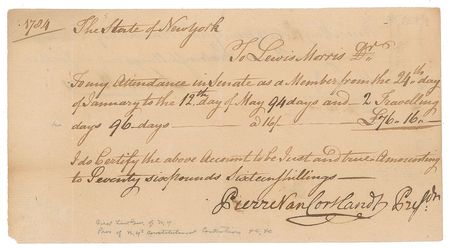 1784
The State of New York
To Lewis Morris Dr
To my Attendance in Senate as a Member from the 24th day
of January to the 12th day of May 94 days and 2 Travelling
days 96 days a 16/ £76.16.
I do Certify the above Account to be Just and true Amounting
to Seventy six pounds Sixteen shillings
Pierre Van Cortlandt Presdt
of N.Y
of N.Y Constitutional